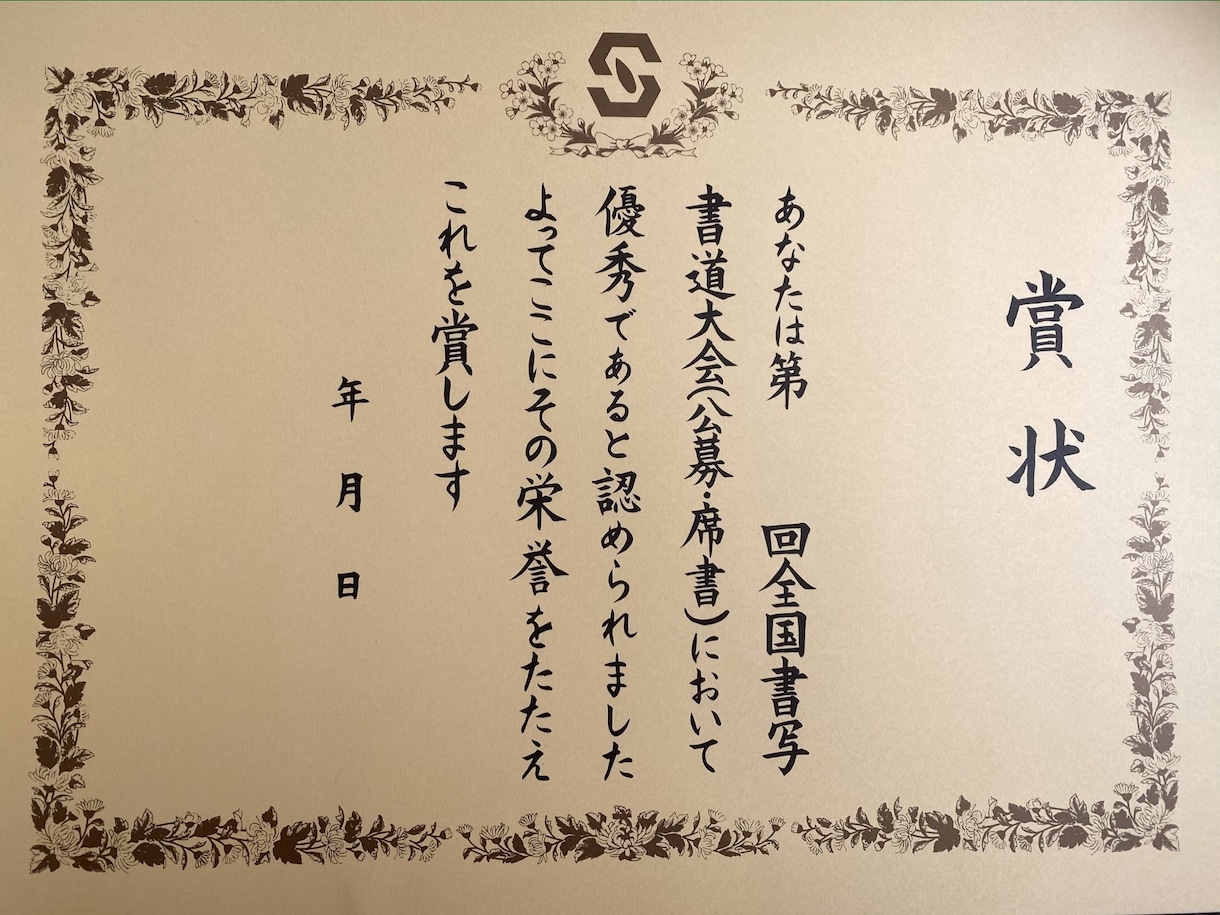 賞状
あなたは第　　回全国書写
書道大会(公募・席書)において
優秀であると認められました
よってここにその栄誉をたたえ
これを賞します
年　月　日